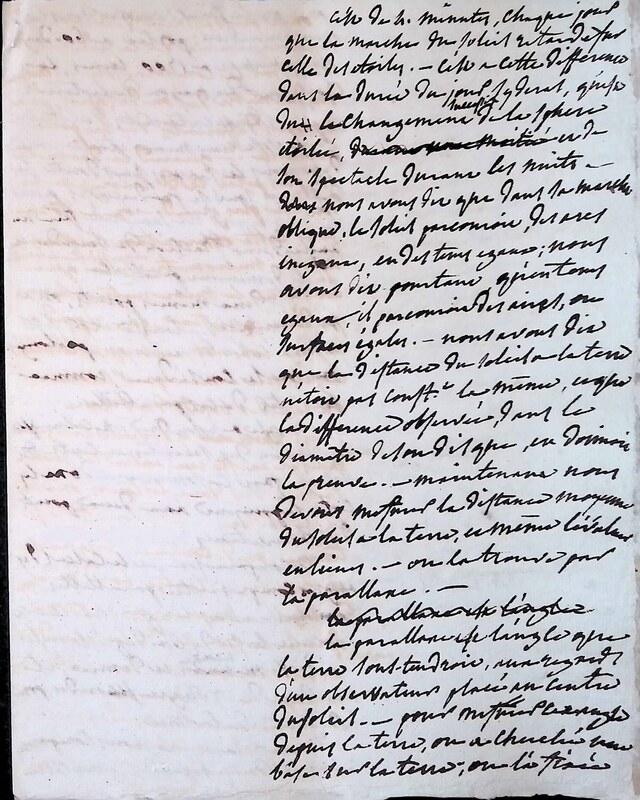 c'est de 4. minutes, chaque jour
que la marche du soleil retarde sur
celle des etoiles. — c'est a cette difference
dans la durée du jour syderal, qu'est
du le changement successif de la sphere
etoilée, et de
son spectacle durant les nuits —
nous avons dit que dans sa marche
oblique, le soleil parcouroit, des arcs
inégaux, en des tems egaux; nous
avons dit pourtant qu'en tems
egaux il parcouroit des aires, ou
surfaces égales. — nous avons dit
que la distance du soleil a la terre
n'étoit pas const.t la même, et que
la difference observée, dans le
diametre de son disque, en donnoit
la preuve. — maintenant nous
devons mesurer la distance moyenne
du soleil a la terre, et même l'évaluer
en lieues. — on la trouve par
la parallaxe. —
la parallaxe est l'angle
la parallaxe est l'angle que
la terre sous-tendroit, aux regards
d'un observateur placé au centre
du soleil. — pour mesurer cet angle
depuis la terre, on a cherché une
base sur la terre, on l'a fixée